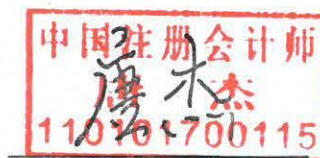 中国注册会计师
杰
110101700115